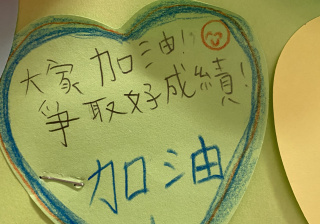 大家加油!!
爭取好成績!
加油